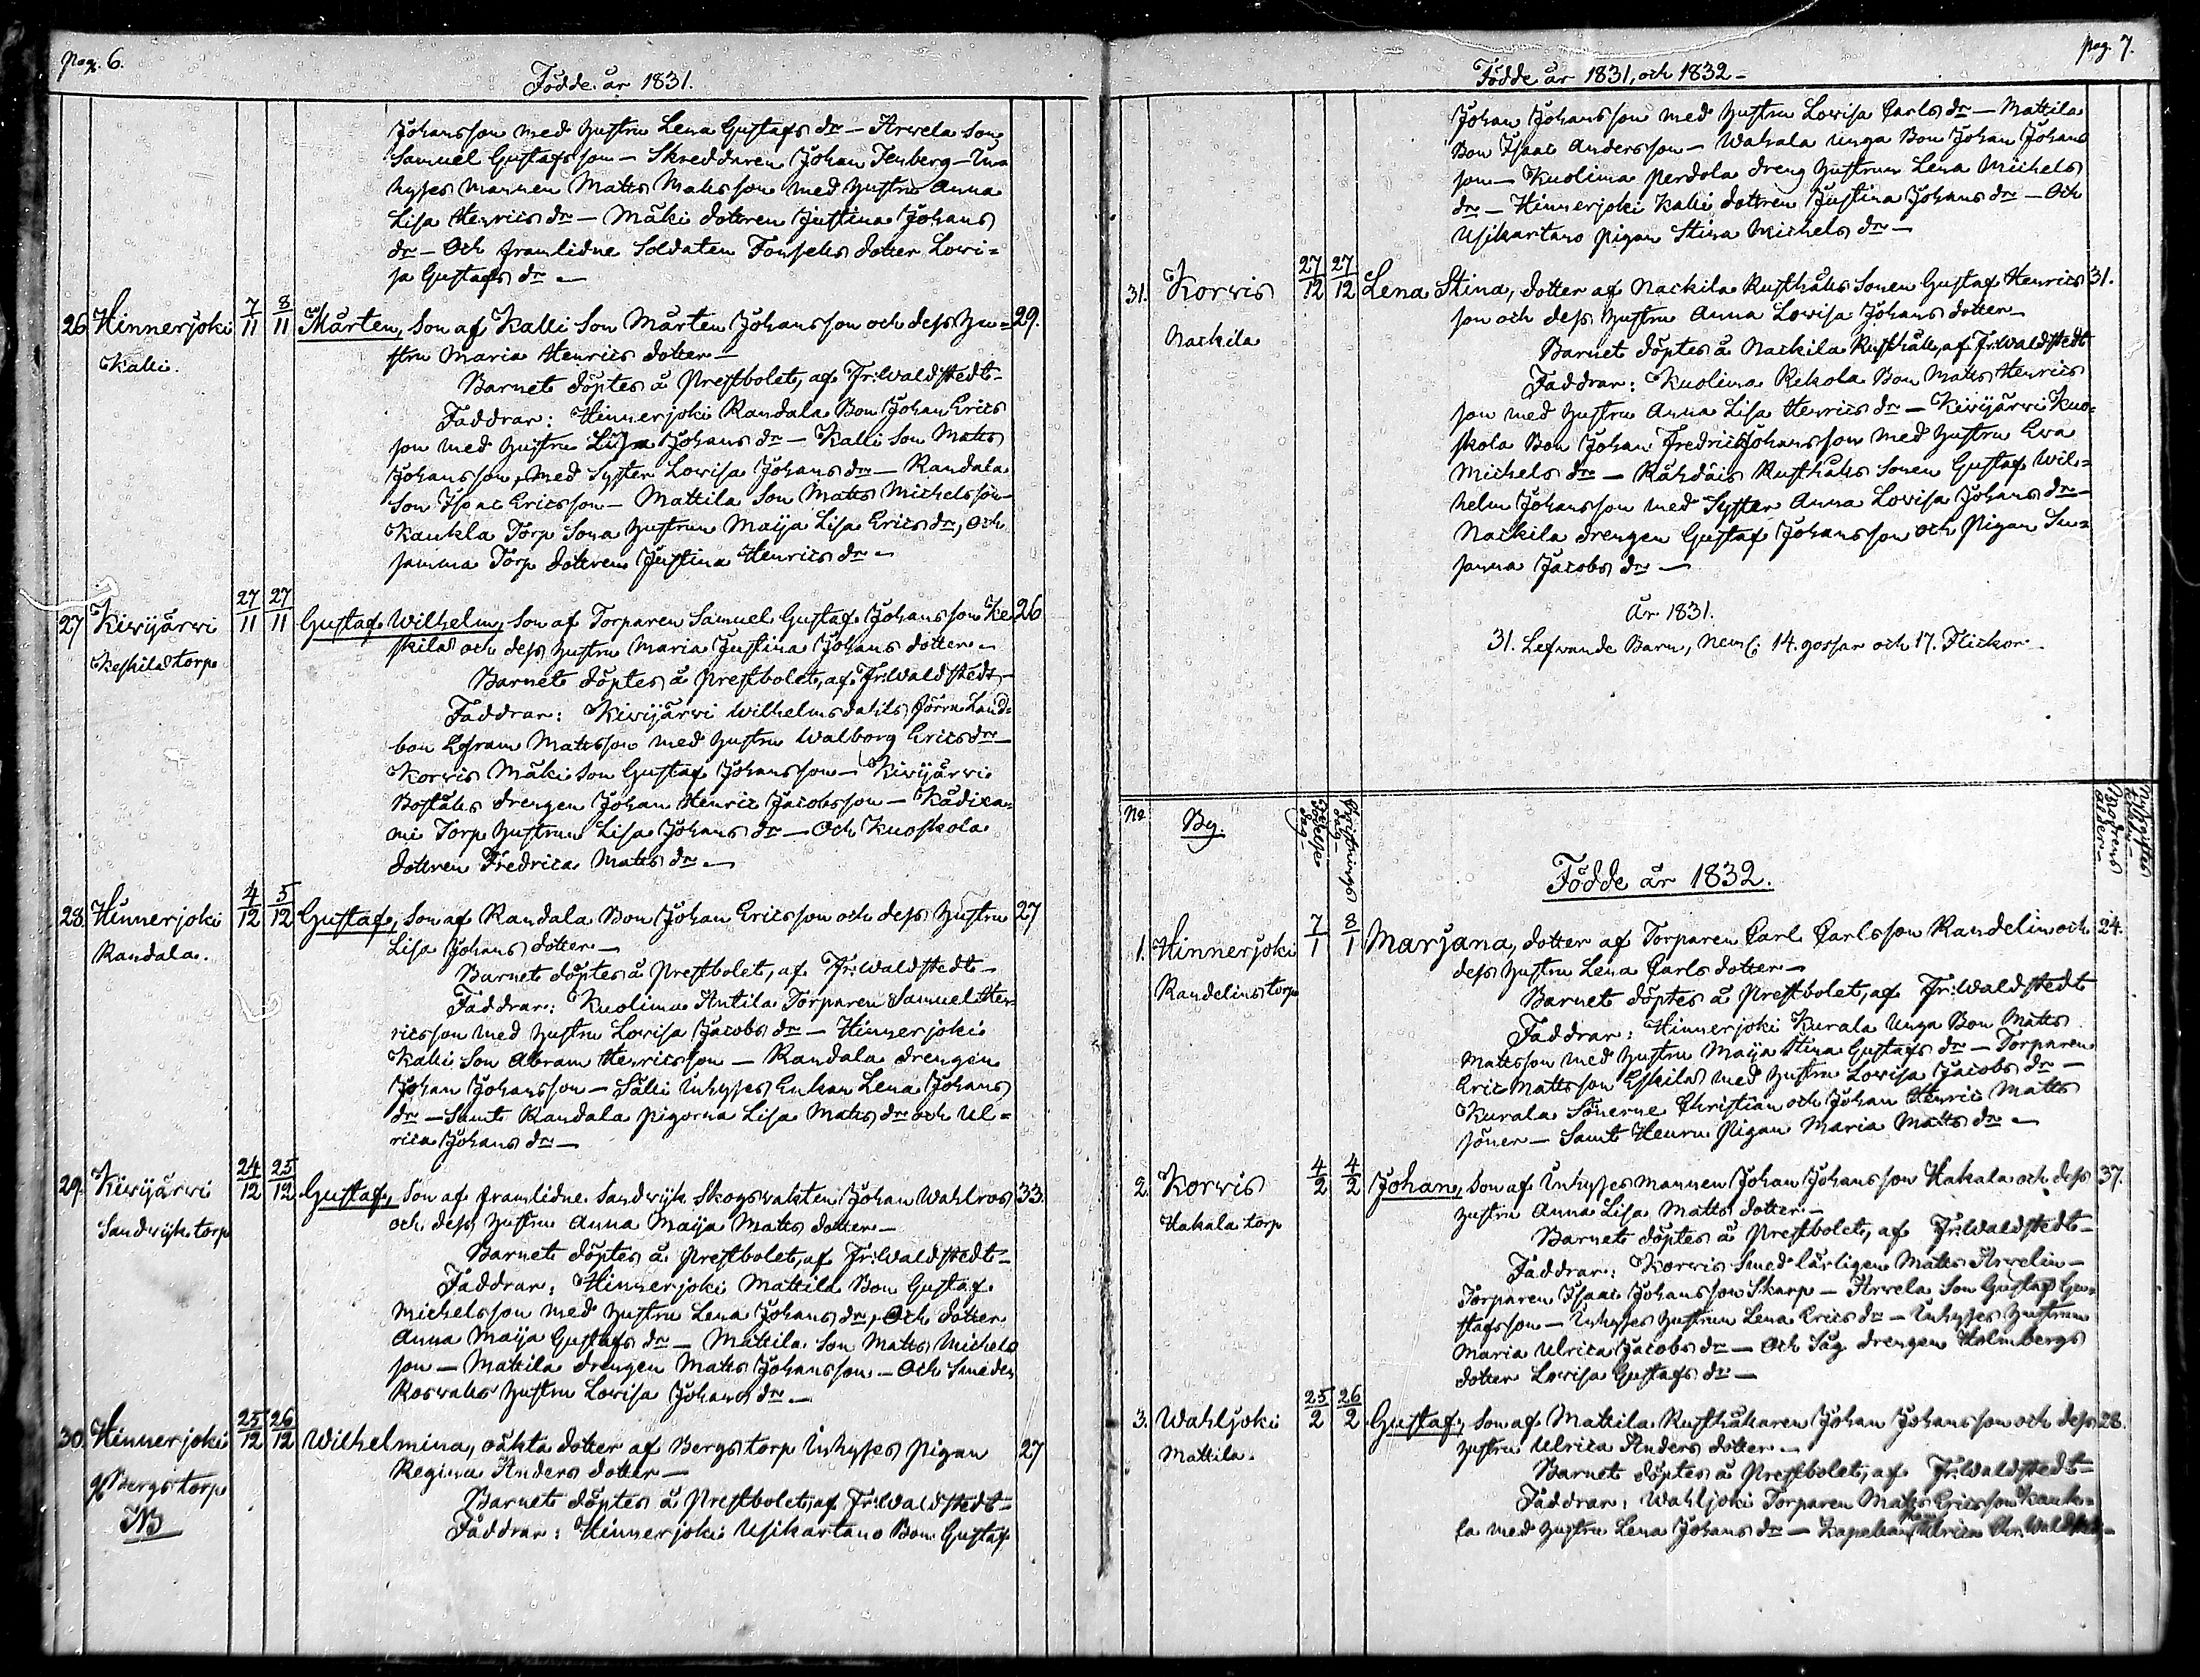 pag. 6.
Födde år 1831.
Johansson med hustru Lena Gustafs dr – Arwela Son
Samuel Gustafsson – Skreddaren Johan Tenberg – In-
hyses mannen Matts Matsson med hustru Anna
Lisa Henrics dr – Mäki dottren Justina Johans
dr – Och framlidne Soldaten Fonsells dotter Lowi=
sa Gustafs dr –
26 Hinnerjoki 7/11 8/11 Mårten, Son af Kalli Son Mårten Johansson och dess hu= 29.
Kalli. stru Maria Henrics dotter –
Barnet döptes å Prestbolet, af Fr: Waldstedt –
Faddrar: Hinnerjoki Randala Bon Johan Erics
son med hustru Lisa Johans dr – Kalli Son Matts
Johansson, med Syster Lowisa Johans dr – Randala
Son Isaac Ericsson – Mattila Son Matts Michelsson –
Kaukla Torp Sona hustrun Maija Lisa Erics dr, och
samma Torp dottren Justina Henrics dr –
27 Kiwijärwi 27/11 27/11 Gustaf Wilhelm, Son af Torparen Samuel Gustaf Johansson Ke 26
Keskilas torp skilas och dess hustru Maria Justina Johans dotter –
Barnet döptes å Prestbolet, af Fr: Waldstedt –
Faddrar: Kiwijärwi Wilhelmsdahls förra Land=
bon Efraim Mattsson med hustru Walborg Erics dr –
Korwis Mäki Son Gustaf Johansson – Kiwijärwi
Boställs drengen Johan Henric Jacobsson – Kädixä=
mi Torp hustrun Lisa Johans dr – Och Kuoskola
dottren Fredrica Matts dr –
28. Hinnerjoki 4/12 5/12 Gustaf, Son af Randala Bon Johan Ericsson och dess hustru 27
Randala. Lisa Johans dotter –
Barnet döptes å Prestbolet, af Fr: Waldstedt –
Faddrar: Kuolima Antila Torparen Samuel Hen=
ricsson med hustru Lowisa Jacobs dr – Hinnerjoki
Kalli Son Abram Henricsson – Randala drengen
Johan Johansson – Sälli Inhyses Enkan Lena Johans
dr – Samt Randala pigorna Lisa Matts dr och Ul=
rica Johans dr –
29. Kiwijärwi 24/12 25/12 Gustaf, Son af framlidne Sandwijk Skogswakten Johan Wahlros 33.
Sandwijks torp och dess hustru Anna Maija Matts dotter –
Barnet döptes å Prestbolet, af Fr: Waldstedt –
Faddrar: Hinnerjoki Mattila Bon Gustaf
Michelsson med hustru Lena Johans dr, Och dotter
Anna Maija Gustafs dr – Mattila Son Matts Michels
son – Mattila drengen Matts Johansson – Och Smeden
Roswalls hustru Lowisa Johans dr –
30. Hinnerjoki 25/12 26/12 Wilhelmina, oäkta dotter af Bergstorp Inhyses Pigan 27
Bergs torp Regina Anders dotter –
NB Barnet döptes å Prestbolet, af Fr: Waldstedt –
Faddrar: Hinnerjoki Usikartano Bon Gustaf
pag. 7.
Födde år 1831, och 1832 –
Johan Johansson med hustru Lowisa Carls dr – Mattila
Bon Isaac Andersson – Wahala Unga Bon Johan Johans
son – Kuolima Perdola dreng hustrun Lena Michels
dr – Hinnerjoki Kalli dottren Justina Johans dr – Och
Usikartano Pigan Stina Michels dr –
31. Korwis 27/12 27/12 Lena Stina, dotter af Nackila Rusthålls Sonen Gustaf Henrics 31.
Nackila son och dess hustru Anna Lowisa Johans dotter –
Barnet döptes å Nackila Rusthåll, af Fr: Waldstedt
Faddrar: Kuolima Rekola Bon Matts Henrics
son med hustru Anna Lisa Henrics dr – Kiwijärwi Kuo=
skola Bon Johan Fredric Johansson med hustru Ewa
Michels dr – Rähdäis Rusthålls Sonen Gustaf Wil=
helm Johansson med Syster Anna Lowisa Johans dr –
Nackila drengen Gustaf Johansson och Pigan Su=
sanna Jacobs dr –
År 1831.
31. Lefwande Barn, neml: 14. gossar och 17. Flickor.
No By. Födelse dag – Christnings dag – Modrens ålder –
Födde år 1832.
1. Hinnerjoki 7/1 8/1 Marjana, dotter af Torparen Carl Carlsson Randelin och 24.
Randelins torp dess hustru Lena Carls dotter –
Barnet döptes å Prestbolet, af Fr: Waldstedt
Faddrar: Hinnerjoki Kurala Unga Bon Matts
Mattsson med hustru Maija Stina Gustafs dr – Torparen
Eric Mattsson Eskilas med hustru Lowisa Jacobs dr –
Kurala Sönerne Christian och Johan Henric Matts
söner – Samt Heuru Pigan Maria Matts dr –
2. Korwis 4/2 4/2 Johan, Son af Inhyses mannen Johan Johansson Hakala och dess 37.
Hakala torp hustru Anna Lisa Matts dotter –
Barnet döptes å Prestbolet, af Fr: Waldstedt –
Faddrar: Korwis Smed lärligen Matts Arwelin –
Torparen Isaac Johansson Skarp – Arwela Son Gustaf Gu=
stafsson – Inhyses hustrun Lena Erics dr – Inhyses hustrun
Maria Ulrica Jacobs dr – Och Såg drengen Holmbergs
dotter Lowisa Gustafs dr –
3. Wahljoki 25/2 26/2 Gustaf, Son af Mattila Rusthållaren Johan Johansson och dess 28.
Mattila. hustru Ulrica Anders dotter –
Barnet döptes å Prestbolet, af Fr: Waldstedt –
Faddrar: Wahljoki Torparen Matts Ericsson Kauk=
la med hustru Lena Johans dr – Kapellans Ulrica